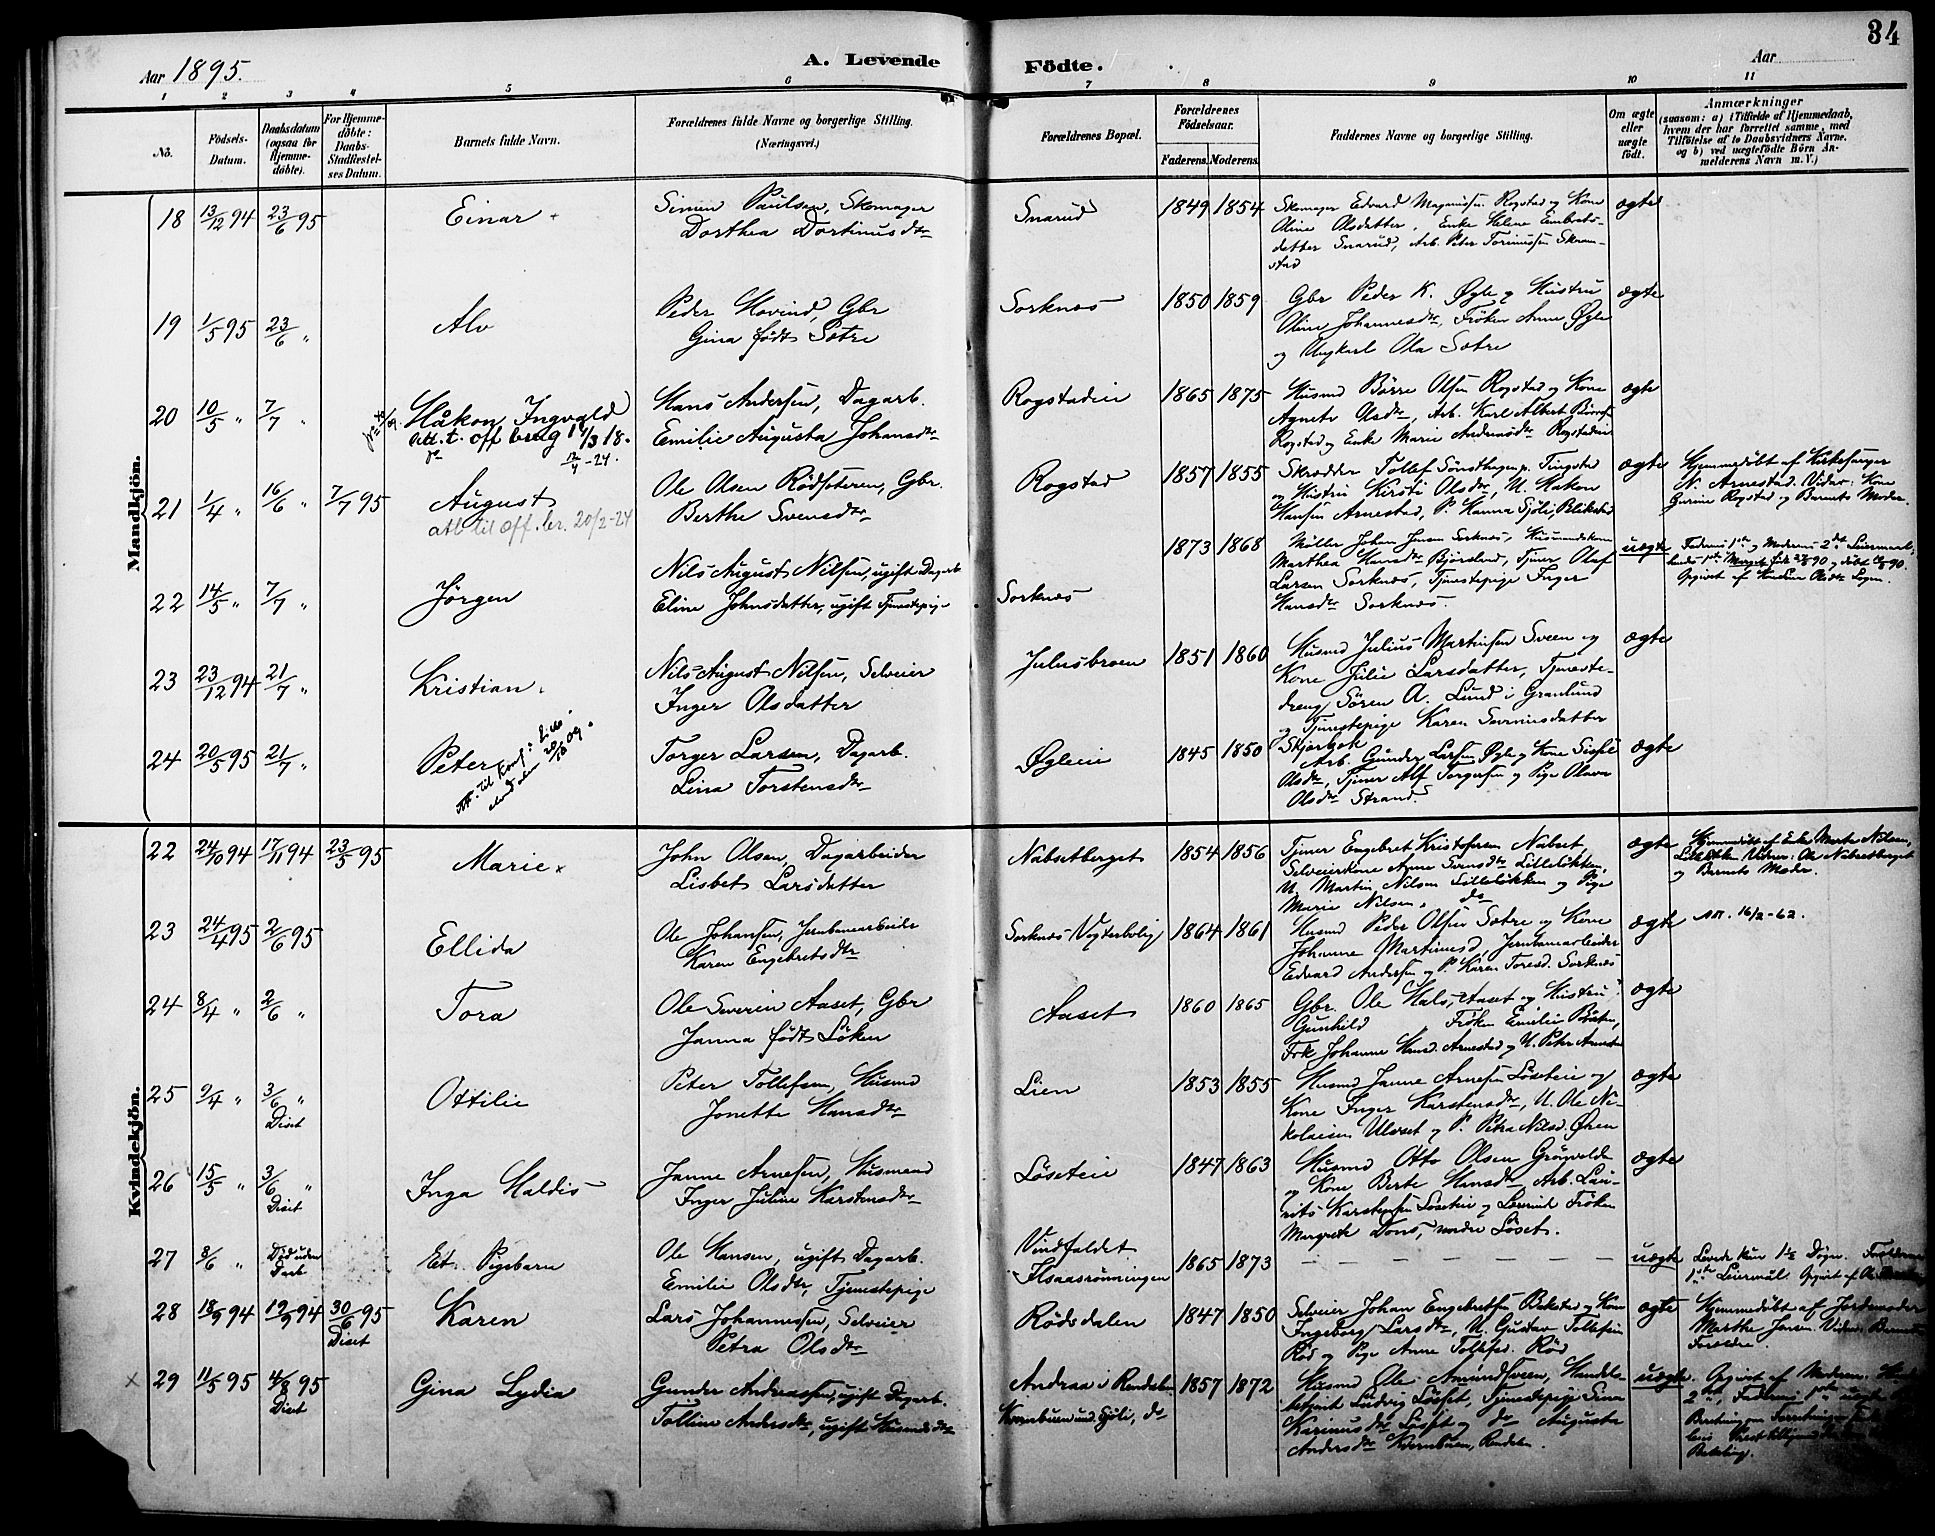 34
Aar 1895.
A. Levende Födte.
Aar
1 2 3 4 5 6 7 8 9 10 11
No.
Födsels-Datum.
Daabsdatum (ogsaa for Hjemme-döbte).
For Hjemme-döbte: Daabs-Stadfæstel-ses Datum.
Barnets fulde Navn.
Forældrenes fulde Navne og borgerlige Stilling. (Næringsvei.)
Forældrenes Bopæl.
Forældrenes Födselsaar.
Faderens. Moderens.
Faddernes Navne og borgerlige Stilling.
Om ægte eller uægte födt.
Anmærkninger
(saasom: a) i Tilfælde af Hjemmedaab, hvem der har forrettet samme, med Tilföielse af to Daabsvidners Navne. og b) ved uægtefödte Börn An-melderens Navn m. V.)
Mandkjön.
18 13/12 94 23/6 95 Einar
Simen Paulsen, Skomager
Dorthea Dortinusdtr
Snarud 1849 1854
Skomager Edvard Magnussen Rogstad og Kone
Oline Olsdatter, Enke Helene Embrets-
datter Snarud, Arb. Peter Torinussen Skram-
stad
ægte
19 1/5 95 23/6 " Alv
Peder Hovind, Gbr
Gina født Sætre
Sorknæs 1850 1859
Gbr Peder K. Øgle og Hustru
Oline Johannesdtr, Frøken Anne Øgle
og Ungkarl Ola Sætre
ægte
20 10/5 " 7/7 " Håkon Ingvald
att. t. off. brug 14/3 18.
12/4 - 24.
Hans Andersen, Dagarb.
Emilie Augusta Johansdtr
Rogstadeie 1865 1875
Husmd Börre Olsen Rogstad og Kone
Agnete Olsdtr, Arb. Karl Albert Börresen
Rogstad og Enke Marie Andersdtr Rogstadeie
ægte
21 1/4 " 16/6 " 7/7 95 August
att. til off. br. 20/2-24
Ole Olsen Rödsæteren, Gbr.
Berthe Svensdtr
Rogstad 1857 1855
Skrædder Tollef Sönsthagen p. Tingstad
og Hustru Kirsti Olsdtr, U. Hakon
Hansen Arnestad, P. Hanna Sjöli, Blikstad
ægte
Hjemmedöbt af Kirkesanger
N. Arnestad. Vidner: Kone
Gurine Rogstad og Barnets Moder.
22 14/5 " 7/7 " Jörgen
Nils August Nilsen, ugift Dagarb.
Eline Johnsdatter, ugift Tjenestepige
Sorknæs 1873 1868
Möller Johan Jensen Sorknæs, Husmandskone
Marthea Hansdtr Björnland, Tjener Olaf
Larsen Sorknæs, Tjenestepige Inger
Hansdtr Sorknæs.
uægte
Faderens 1ste og Moderens 2det Leiermaal;
23 23/12 94 21/7 " Kristian
Nils August Nilsen, Selveier
Inger Olsdatter
Julusbroen 1851 1860
Husmd Julius Martinsen Sveen og
Kone Julie Larsdatter, Tjeneste-
dreng Sören A. Lund i Granlund
og Tjenestepige Karen Severinsdatter
Skjærbæk
ægte
24 20/5 95 21/7 " Peter
Torger Larsen, Dagarb.
Lina Torstensdtr
Øgleie 1845 1850
Arb. Gunder Larsen Øgle og Kone Sissel
Olsdtr, Tjener Alf Torgersen og Pige Olava
Olsdtr Strand.
ægte
Kvindekjön.
22 24/10 94 17/11 94 23/5 95 Marie
John Olsen, Dagarbeider
Lisbet Larsdatter
Nabsetberget 1854 1856
Tjener Engebret Kristofersen Nabset,
Selveierkone Anne Svensdtr Lillelökken,
U. Martin Nilsen Lillelökken og Pige
Marie Nilsen, do
ægte
Hjemmedöbt af Enke Marte Nilsen,
Lillelökken. Vidner: Ole Nabsetberget
og Barnets Moder.
23 24/4 95 2/6 95 Ellida
Ole Johansen, Jernbanearbeider
Karen Engebretsdtr
Sorknæs Vogterbolig 1864 1861
Husmd Peder Olsen Sætre og Kone
Johanne Martinusd, Jernbanearbeider
Edvard Andersen og P. Karen Toresd. Sorknæs
ægte
att. 16/2 - 62.
24 8/4 " 2/6 " Tora
Ole Severin Aaset, Gbr
Janna født Löken
Aaset 1860 1865
Gbr. Ole Hals, Aaset og Hustru
Gunhild Frøken Emilie Bråten,
Frk Johanne Hansd. Arnestad og U. Peter Arnestad
ægte
25 2/4 " 3/6 " Diset Ottilie
Peter Tollefsen, Husmd
Jonette Hansdtr
Lien 1853 1855
Husmd Janne Arnesen Löseteie og
Kone Inger Karstensdtr, U. Ole Ni-
kolaisen Ulvset og P. Petra Nilsd. Øren
ægte
26 15/5 " 3/6 " Diset Inga Haldis
Janne Arnesen, Husmand
Inger Juline Karstensdtr
Löseteie 1847 1863
Husmd Otto Olsen Grönvolde
og Kone Berte Hansdtr, Arb. Lau-
rits Karstensen Löseteie og Lærerind Frøken
Margrete Dons, nordre Löset.
ægte
27 3/6 " Död uden Daab Et Pigebarn
Ole Hansen, ugift Dagarb.
Emilie Olsdtr, Tjenestepige
Vindfaldet
Ilsaasrönningen 1865 1873
uægte
Levede kun 1½ Dögn. Forældrenes
1ste Leiermål.
28 18/9 94 19/9 94 30/6 95 Diset Karen
Lars Johannessen, Selveier
Petra Olsdtr
Rödsdalen 1847 1850
Selveier Johan Engebretsen Bakstad og Kone
Ingeborg Larsdtr, U. Gustav Tollefsen
Röd og Pige Anne Tollefsd. Röd
ægte
Hjemmedöbt af Jordemoder
Marthe Jensen. Vidner: Barnets
Forældre.
29 11/5 95 4/8 95 Diset Gina Lydia
Gunder Andreassen, ugift Dagarb.
Talline Andersdtr, ugift Husmdsdtr
Andraa i Rendalen
Kværnbuen und. Sjöli, do 1857 1872
Husmd Ole Amundsveen, Handels-
betjent Ludvig Löset, Tjenestepige Lena
Karinusdtr Löset og do Augusta
Andersdtr Kværnbuen, Rendalen.
uægte
Opgivet af Moderen.